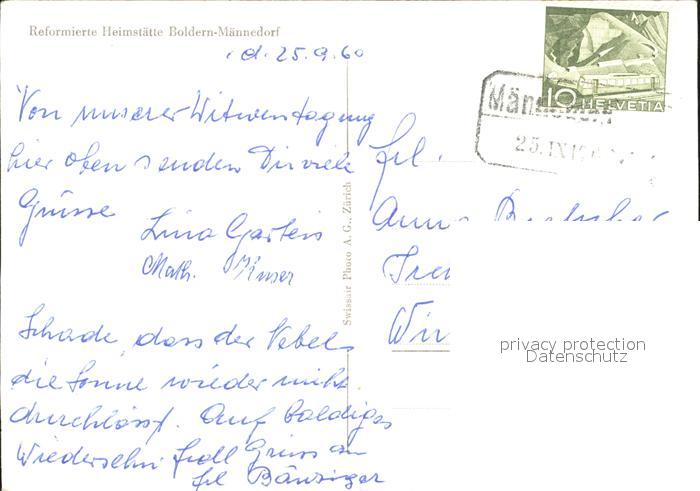 Reformierte Heimstätte Boldern-Männedorf
d. 25.9.60
10 HELVETIA
Männedorf
25. IX 19
Von unserer Witwentagung
hier oben senden Dir viele
Grüsse
Lina
Math.
Schade, dass der Nebel
die Sonne wieder nicht
durchlässt. Auf baldiges
Wiedersehn Gruss an
frl Bänziger
frl.
Swissair Photo A. G., Zürich
privacy protection
Datenschutz